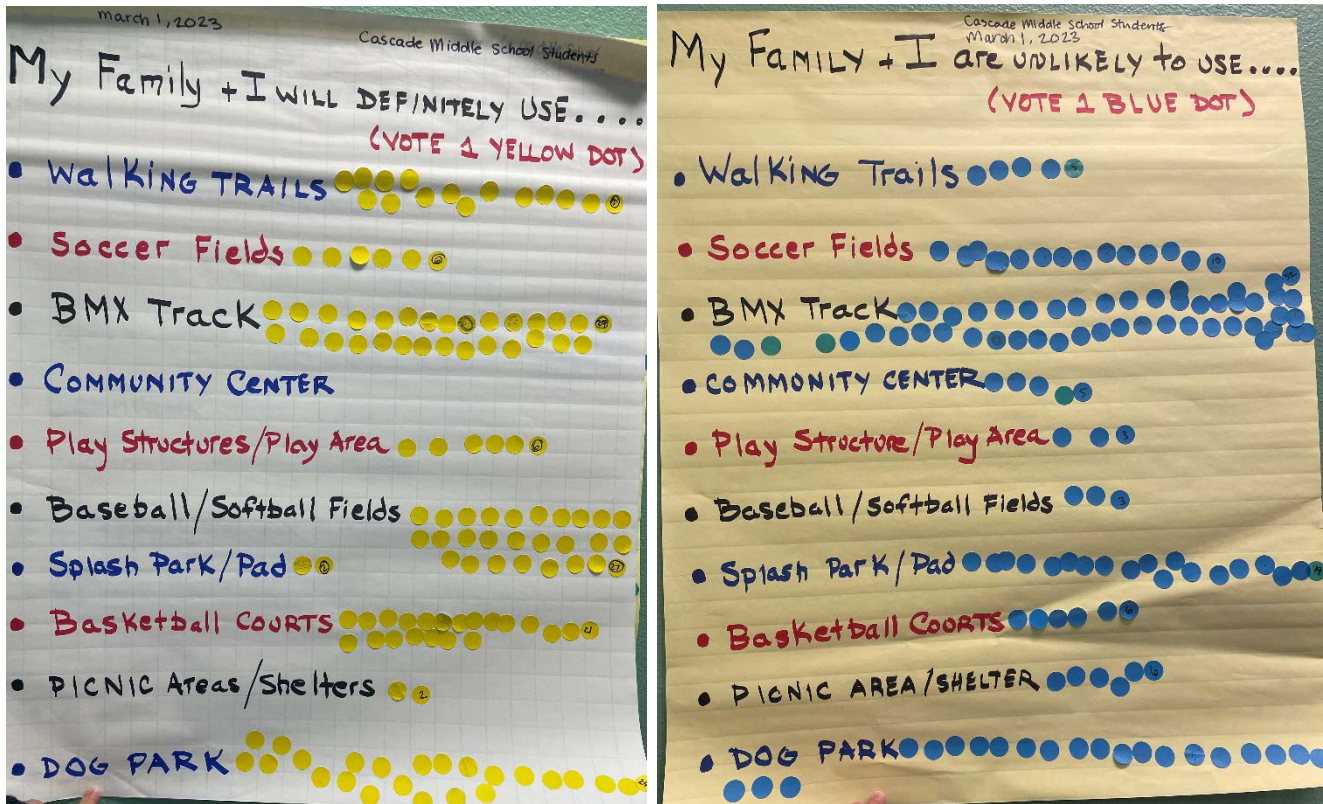 march 1, 2023
Cascade Middle School Students
My Family + I WILL DEFINITELY USE....
(VOTE 1 YELLOW DOT)
• Walking TRAILS
• Soccer Fields 6
• BMX Track
• COMMUNITY CENTER
• Play Structures/Play Area 6
• Baseball/Softball Fields
• Splash Park/Pad 2 27
• Basketball COURTS 21
• PICNIC Areas/Shelters 2
• DOG PARK
Cascade Middle School Students
March 1, 2023
My FAMILY + I are UNLIKELY to USE....
(VOTE 1 BLUE DOT)
• Walking Trails 5
• Soccer Fields
• BMX Track
• COMMUNITY CENTER 5
• Play Structure/Play Area 3
• Baseball/Softball Fields 3
• Splash Park/Pad
• Basketball COURTS 6
• PICNIC AREA/SHELTER 6
• DOG PARK